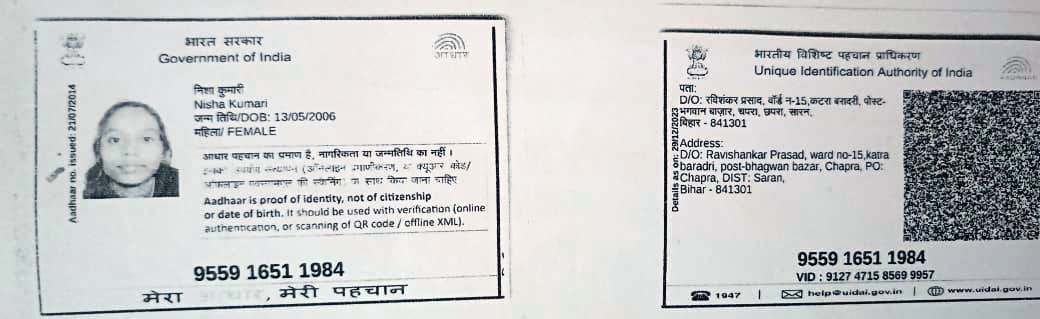 भारत सरकार
Government of India
आधार
Aadhaar no. issued: 21/07/2014
निशा कुमारी
Nisha Kumari
जन्म तिथि/DOB: 13/05/2006
महिला/ FEMALE
आधार पहचान का प्रमाण है, नागरिकता या जन्मतिथि का नहीं ।
(ऑनलाइन प्रमाणीकरण, या क्यूआर कोड/
के साथ किया जाना चाहिए
Aadhaar is proof of identity, not of citizenship
or date of birth. It should be used with verification (online
authentication, or scanning of QR code / offline XML).
9559 1651 1984
मेरा आधार, मेरी पहचान
भारतीय विशिष्ट पहचान प्राधिकरण
Unique Identification Authority of India
Details as on: 29/12/2023
पता:
D/O: रविशंकर प्रसाद, वॉर्ड न-15,कटरा बरादरी, पोस्ट-
भगवान बाज़ार, चपरा, छपरा, सारन,
बिहार - 841301
Address:
D/O: Ravishankar Prasad, ward no-15,katra
baradri, post-bhagwan bazar, Chapra, PO:
Chapra, DIST: Saran,
Bihar - 841301
9559 1651 1984
VID : 9127 4715 8569 9957
1947 | help@uidai.gov.in | www.uidai.gov.in